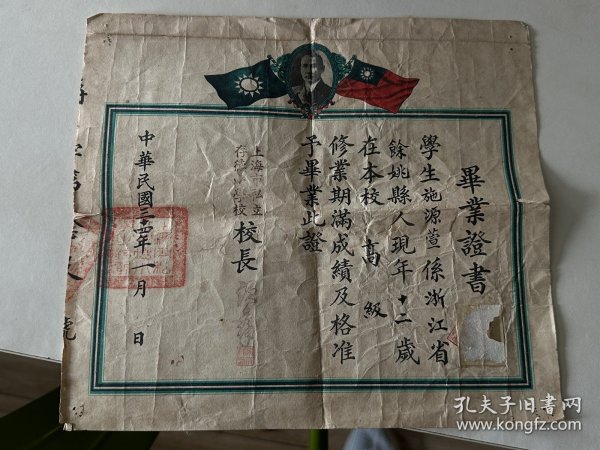 畢業證書
學生施源萱係浙江省
餘姚縣人現年十二歲
在本校高級
修業期滿成績及格准
予畢業此證
上海市私立
存德小學校
校長
中華民國三十四年一月 日
孔夫子旧书网
www.kongfz.com